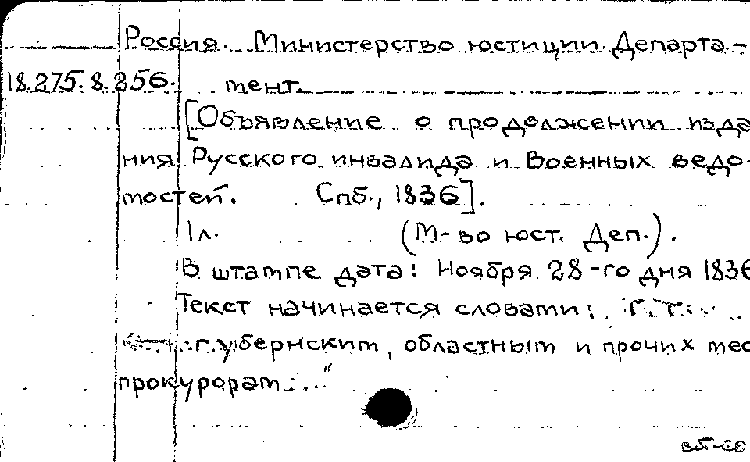 Россия. Министерство юстиции Департа-
18.275.8.256. мент.
[Объявление о продолжении изда
ния Русского инвалида и Военных ведо-
мостей. Спб., 1836].
1л. (М-во юст. Деп.).
В штампе дата: Ноября 28-го дня 1836
Текст начинается словами:
губернским, областным и прочих мес
прокурорам..."